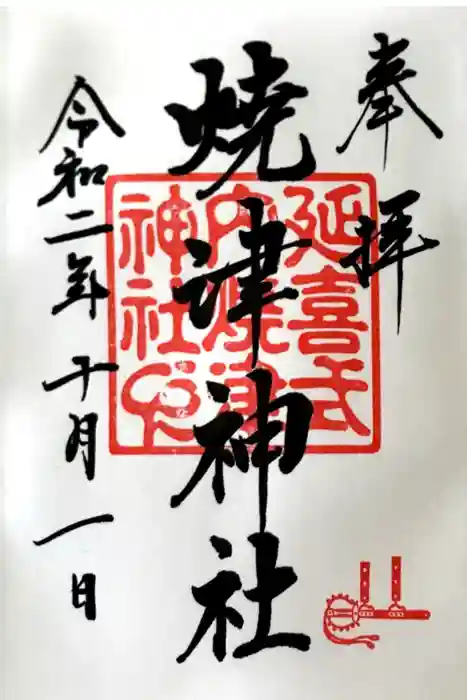 奉拝
延喜式
内焼津
神社印
焼津神社
令和二年十月一日